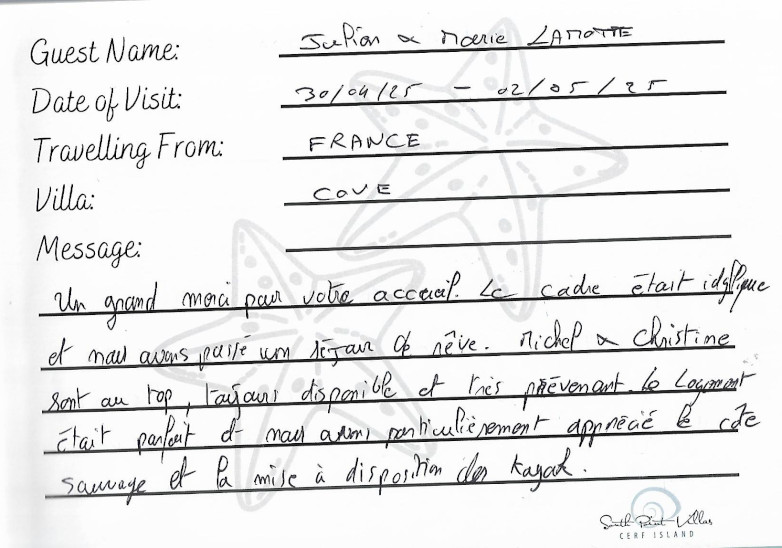 Guest Name: Julian & Marie LAMOTTE
Date of Visit: 30/04/25 - 02/05/25
Travelling From: FRANCE
Villa: COVE
Message:
Un grand merci pour votre accueil. Le cadre était idyllique
et nous avons passé un séjour de rêve. Michel & Christine
sont au top, toujours disponible et très prévenant. Le Logement
était parfait et nous avons particulièrement apprécié le côte
sauvage et la mise à disposition des Kayak.
South Point Villas
CERF ISLAND